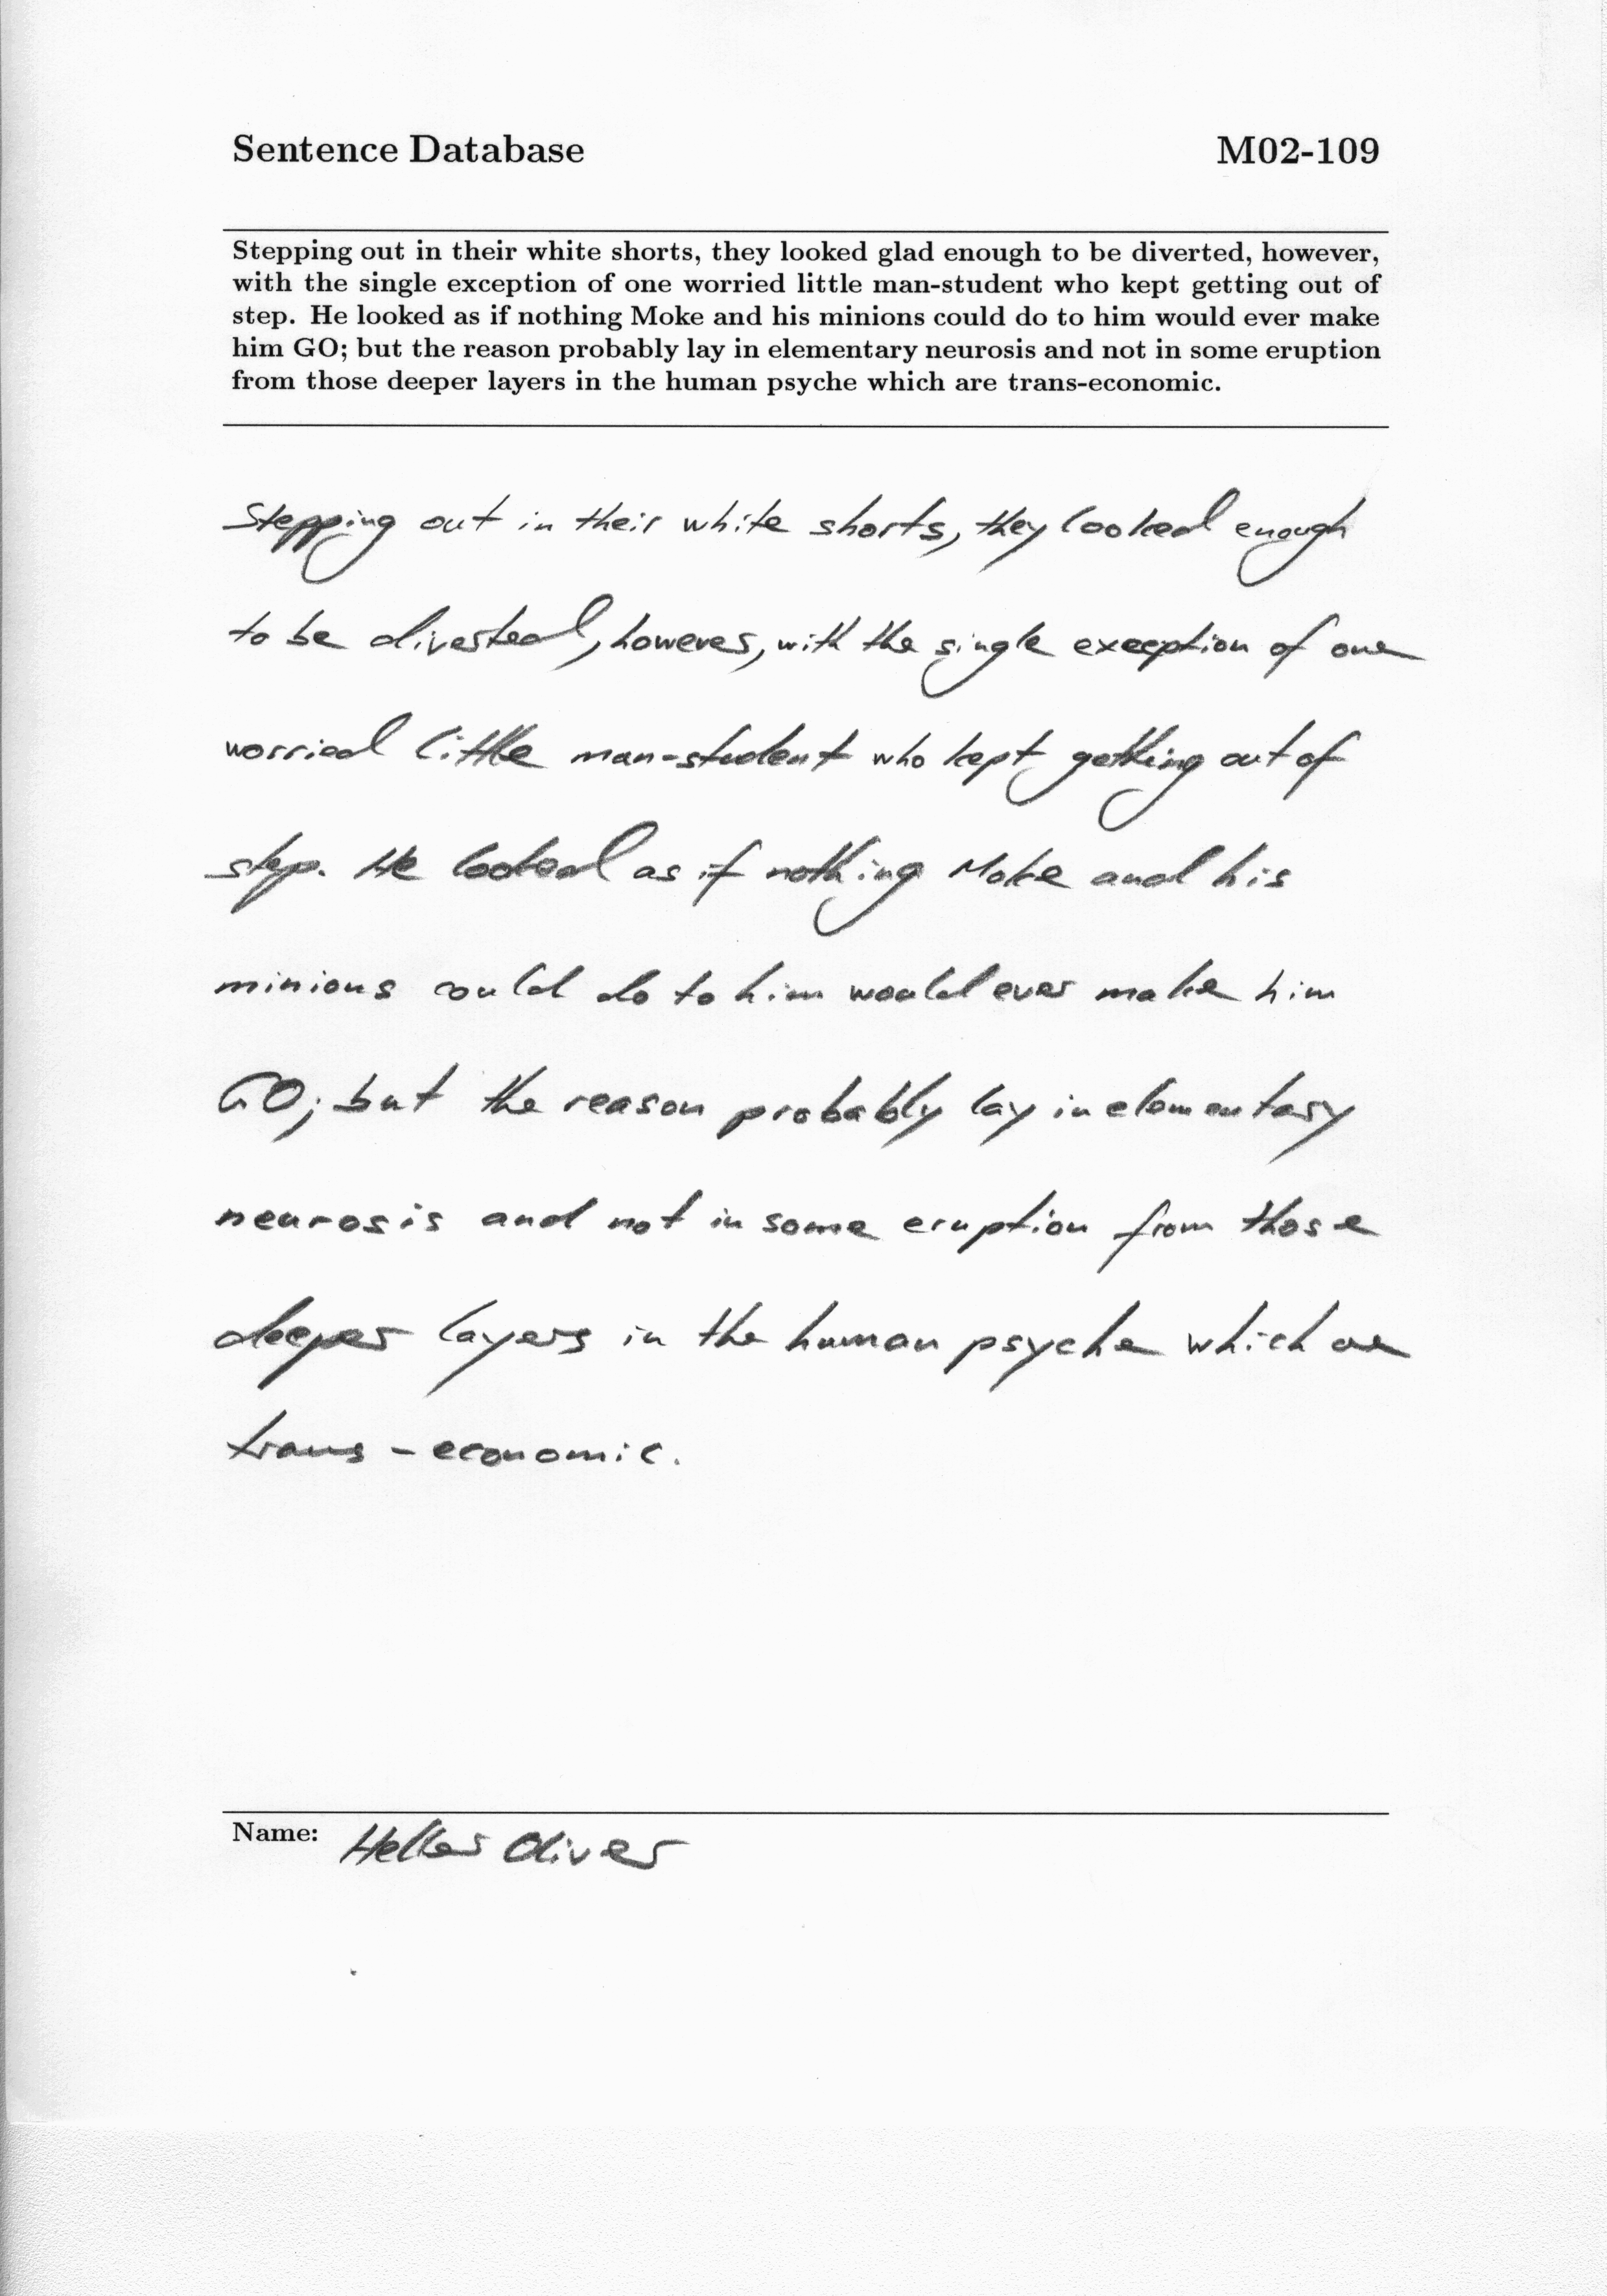 Sentence Database M02-109
Stepping out in their white shorts, they looked glad enough to be diverted, however,
with the single exception of one worried little man-student who kept getting out of
step. He looked as if nothing Moke and his minions could do to him would ever make
him GO; but the reason probably lay in elementary neurosis and not in some eruption
from those deeper layers in the human psyche which are trans-economic.
Stepping out in their white shorts, they looked enough
to be diverted, however, with the single exception of one
worried little man-student who kept getting out of
step. He looked as if nothing Moke and his
minions could do to him would ever make him
GO; but the reason probably lay in elementary
neurosis and not in some eruption from those
deeper layers in the human psyche which are
trans-economic.
Name: Heller Oliver